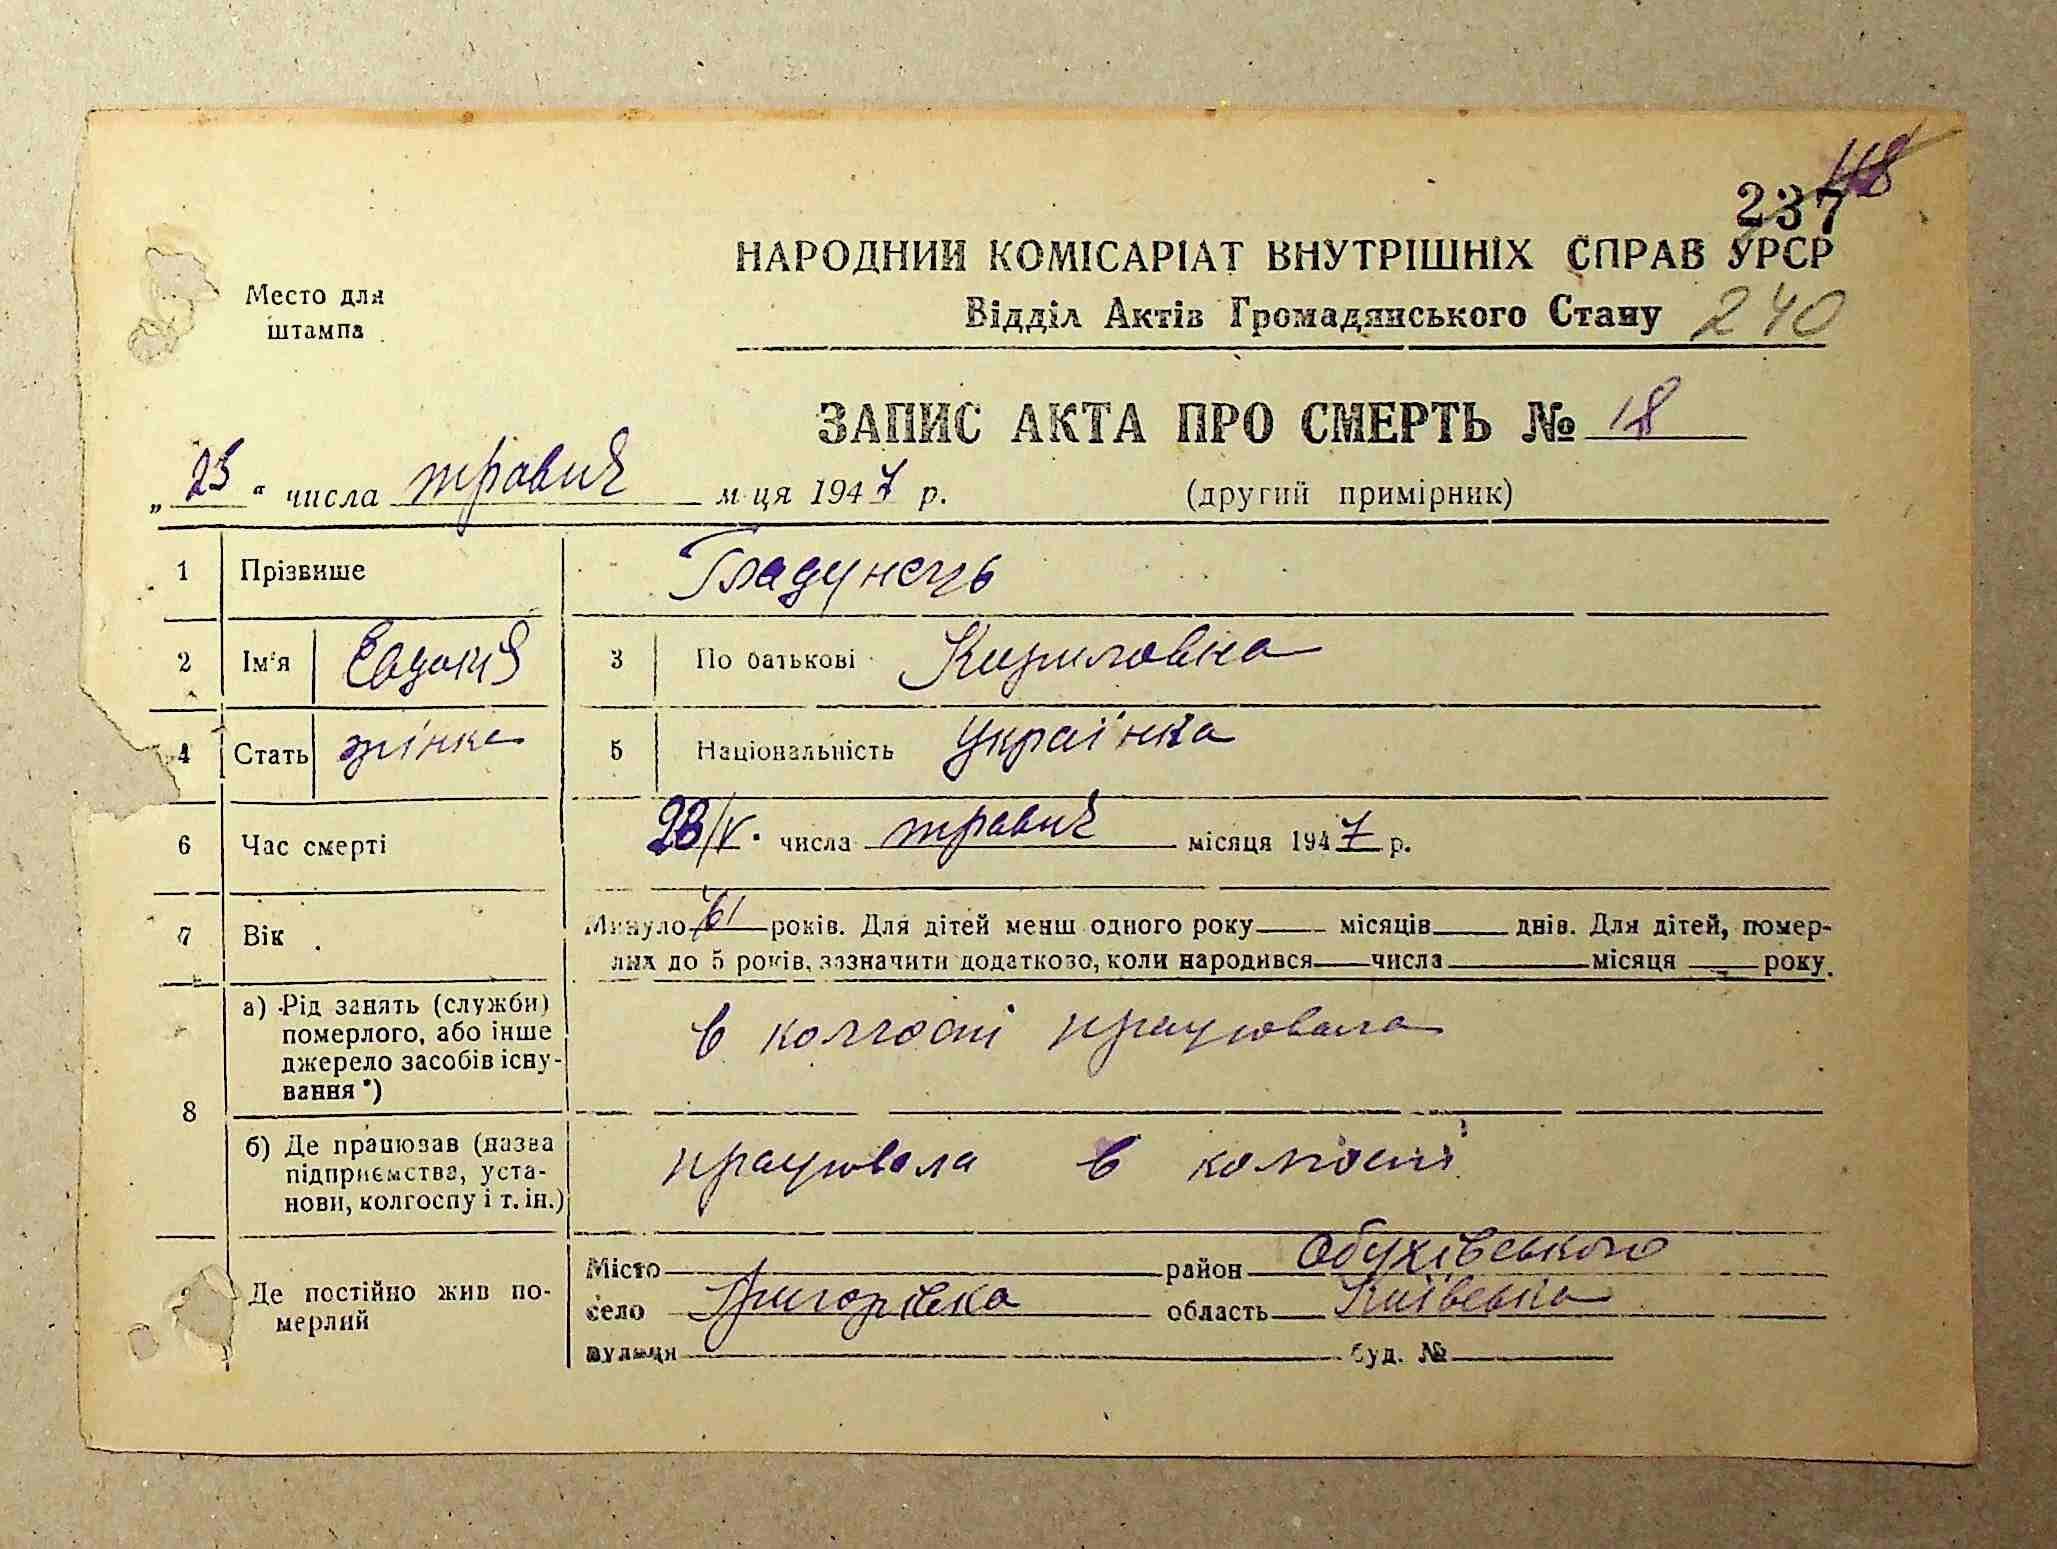 118
237
НАРОДНИЙ КОМІСАРІАТ ВНУТРІШНІХ СПРАВ УРСР
Место для
штампа
Відділ Актів Громадянського Стану 240
ЗАПИС АКТА ПРО СМЕРТЬ № 18
„25“ числа травня м-ця 1947 р. (другий примірник)
1 Прізвише Гладунець
2 Ім'я Евдокия 3 По батькові Кириловна
4 Стать жінка 5 Національність Українка
6 Час смерті 23/V. числа травня місяця 1947 р.
7 Вік Минуло 61 років. Для дітей менш одного року місяців днів. Для дітей, помер-
лих до 5 років, зазначити додатково, коли народився числа місяця року.
8 а) Рід занять (служби)
померлого, або інше
джерело засобів існу-
вання *)
в колгоспі працювала
б) Де працював (назва
підприємства, уста-
нови, колгоспу і т. ін.)
працювала в колгоспі
Де постійно жив по-
мерлий
Місто район Обухівського
село Григорівка область Київська
вулиця буд. №